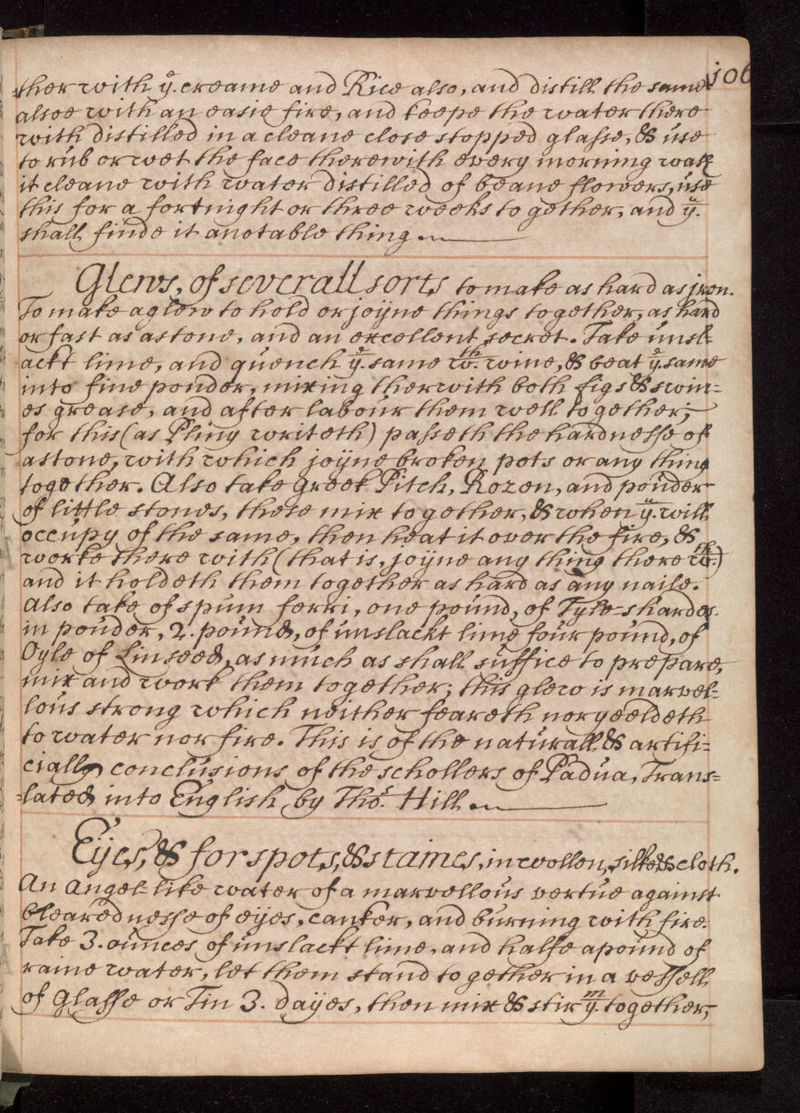 106
ther with yͤ. creame and Rice also, and distill the same
alsoe with an easie fire, and keepe the water there
with distilled in a cleane close stopped glasse, & use
to rub or wet the face therewith every morning
it cleane with water distilled of beane flowers, use
this for a fortnight or three weeks together, and yᵘ.
shall finde it a notable thing.
Glews, of severall sorts to make as hard as jron.
To make a glew to hold or joyne things together, as hard
or fast as a stone, and an excellent secret. Take unsl-
ackt lime, and quench yͤ. same wᵗʰ. wine, & beat yͤ. same
into fine pouder, mixing therwith both figs & swin=
es grease, and after labour them well together;
for this (as Pliny writeth) passeth the hardnesse of
a stone, with which joyne broken pots or any thing
together. Also take greek Pitch, Rozen, and pouder
of little stones, these mix together, & when yᵘ. will
occupy of the same, then heat it over the fire, &
worke there with (that is, joyne any thing there wᵗʰ.)
and it holdeth them together as hard as any naile.
Also take of spum ferri, one pound, of Tyle-shardes
in pouder, 2. pound, of unslackt lime four pound, of
Oyle of Linseed, as much as shall suffice to prepare,
mix and work them together; this glew is marvel-
lous strong which neither feareth nor yeeldeth
to water nor fire. This is of the naturall & artifi=
ciall conclusions of the schollers of Padua, Trans=
=lated into English, by Thoˢ. Hill.
Eyes, & for spots, & staines, in wollen, silke & cloth.
An angel-like water of a marvellous vertue against
blearednesse of eyes, canker, and burning with fire.
Take 3. ounces of unslackt lime, and halfe a pound of
raine water, let them stand together in a vessell
of Glasse or Tin 3. dayes, then mix & stir yᵐ. together,